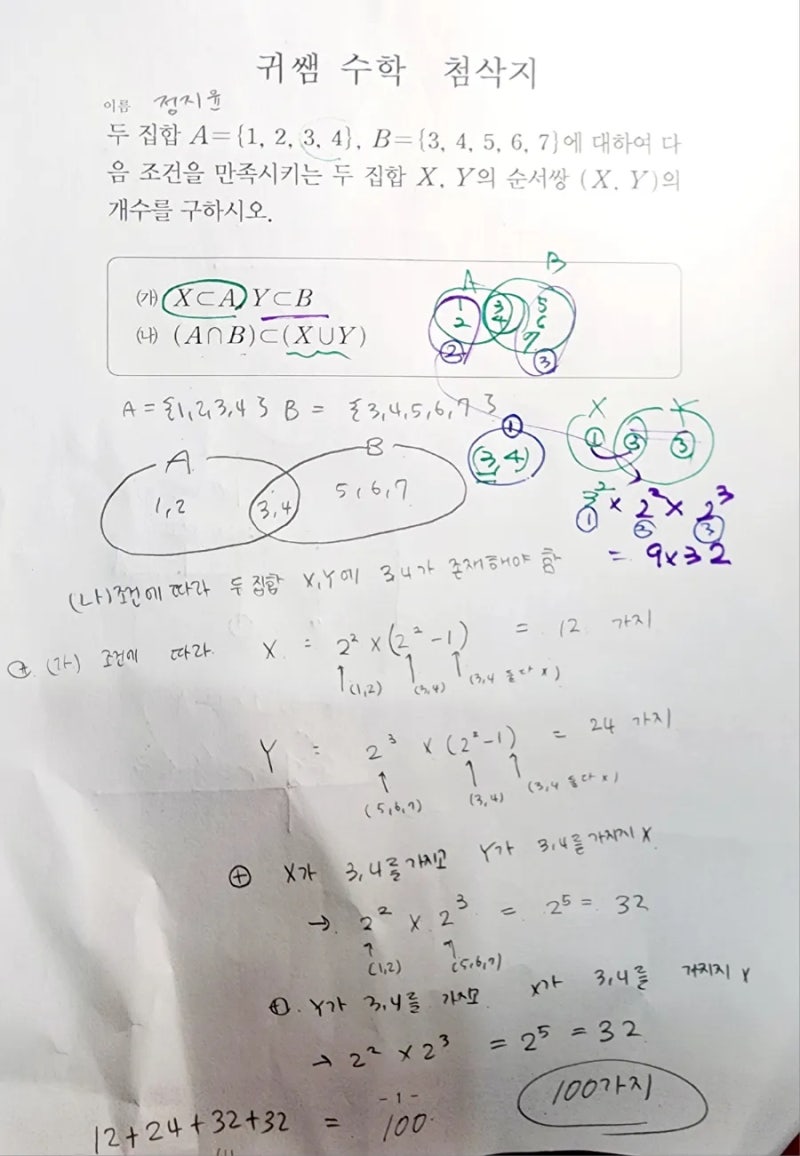 귀쌤 수학 첨삭지
이름 정지윤
두 집합 A={1, 2, 3, 4}, B={3, 4, 5, 6, 7}에 대하여 다
음 조건을 만족시키는 두 집합 X, Y의 순서쌍 (X, Y)의
개수를 구하시오.
(가) X⊂A, Y⊂B
(나) (A∩B)⊂(X∪Y)
A B
1 2 3 4 5 6 7
② ③
A = {1,2,3,4} B = {3,4,5,6,7}
①
(3,4)
X Y
① ③ ③
A B
1,2 3,4 5,6,7
3² × 2² × 2³
① ② ③
= 9×32
(나)조건에 따라 두 집합 X,Y에 3,4가 존재해야 함
(가) 조건에 따라 X = 2² × (2² -1) = 12 가지
↑(1,2) ↑(3,4) ↑(3,4 둘다 x)
Y = 2³ × (2²-1) = 24 가지
↑ ↑ ↑
(5,6,7) (3,4) (3,4 둘다 x)
⊕ X가 3,4를 가지고 Y가 3,4를 가지지 X
→ 2² × 2³ = 2⁵ = 32
↑ ↑
(1,2) (5,6,7)
⊕. Y가 3,4를 가지고 X가 3,4를 가지지 X
→ 2² × 2³ = 2⁵ = 32
100가지
- 1 -
12+24+32+32 = 100.